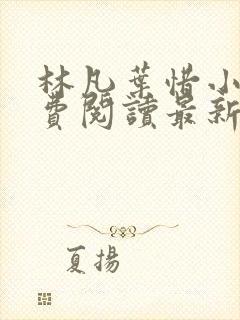 林凡葉惜小
費閱讀最新
夏揚